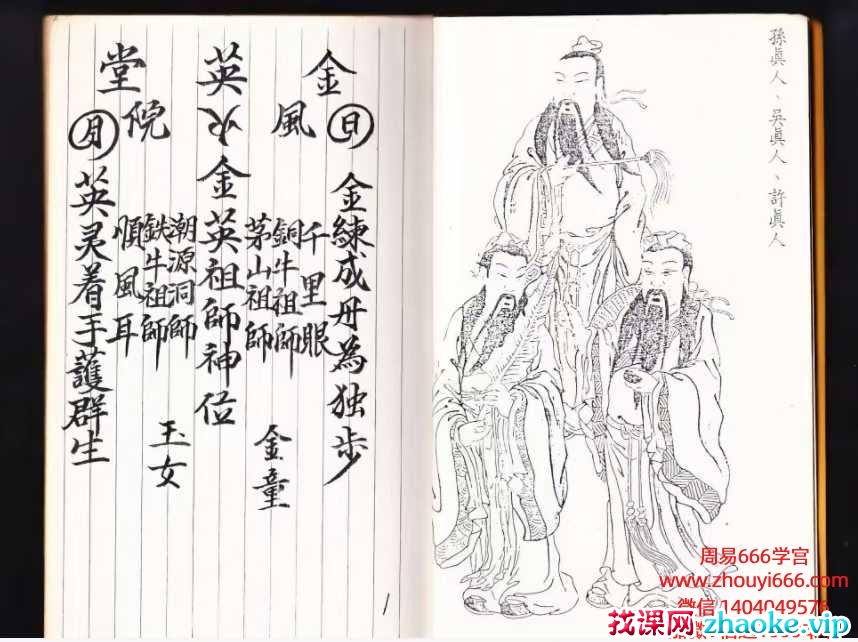 孫眞人、吳眞人、許眞人
金英堂
風火院
日
金練成丹為独步
千里眼
銅牛祖師
茅山祖師
金童
金英祖師神位
潮源洞師
鉄牛祖師
順風耳
玉女
月
英灵着手護群生
1
周易666学宫
www.zhouyi666.com
微信1404049576
找课网 zhaoke.vip